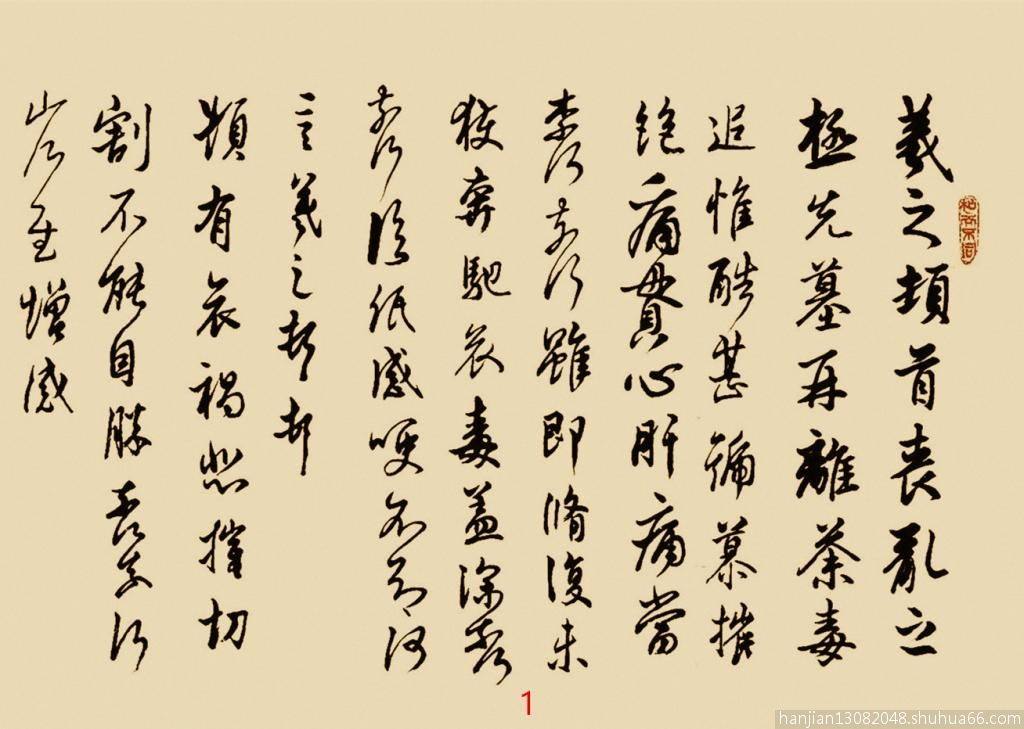 羲之頓首喪亂之
極先墓再離荼毒
追惟酷甚號慕摧
絕痛貫心肝痛當
柰何柰何雖即脩復未
獲奔馳哀毒益深柰何
柰何臨紙感哽不知何
言羲之頓首頓首
頻有哀禍悲摧切
割不能自勝柰何柰何
增感
和而不同
1
hanjian13082048.shuhua66.com